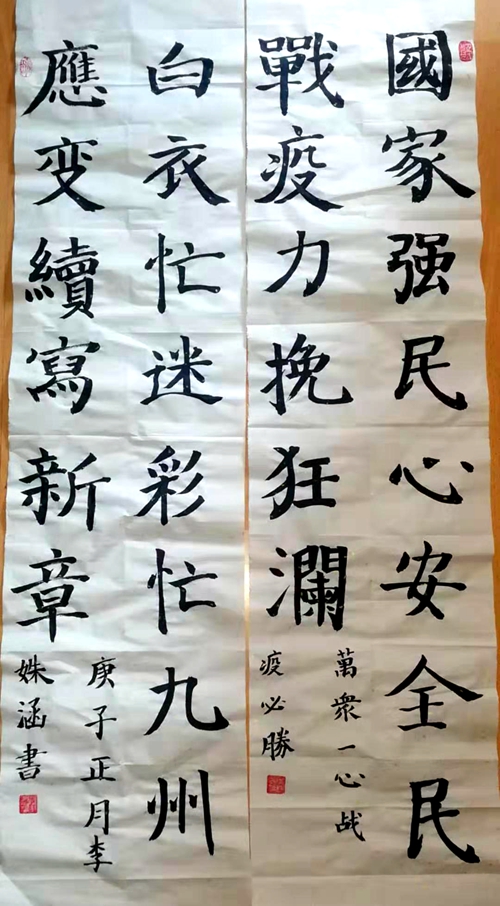 國家强民心安全民
戰疫力挽狂瀾
萬衆一心战
疫必勝
白衣忙迷彩忙九州
應变續寫新章
庚子正月李
姝涵書